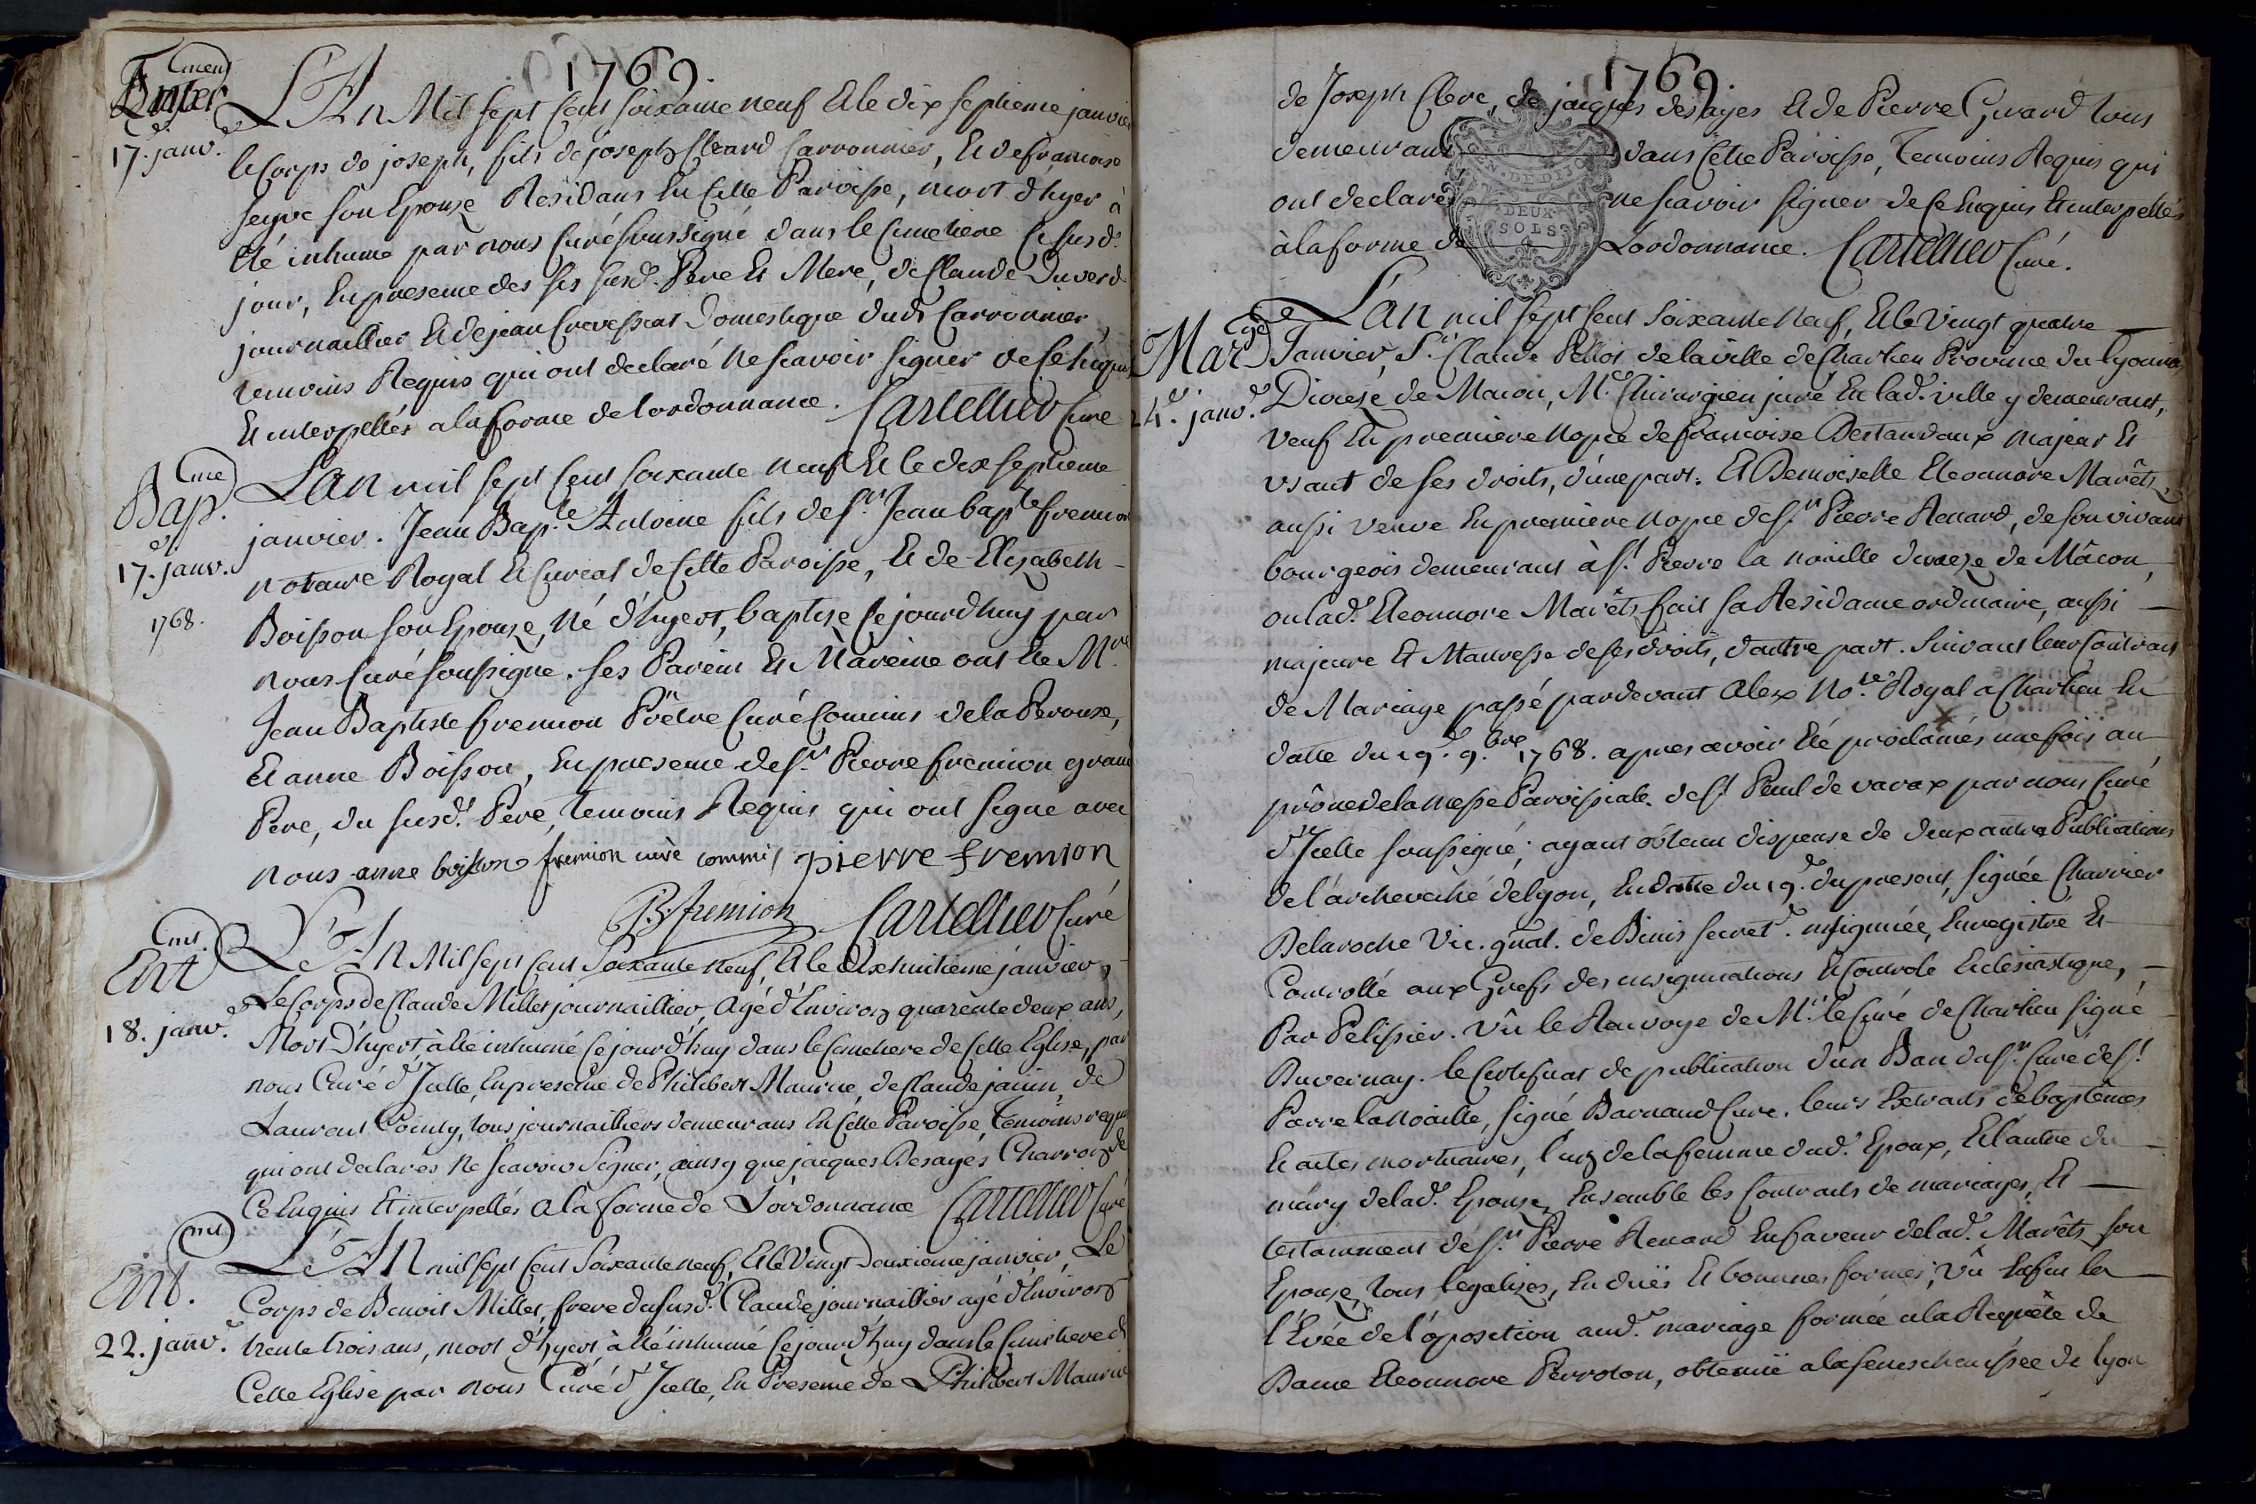 1769.
Enter ment
17.e janv.
L'An Mil sept Cent soixante neuf Et le dix septieme janvier
le Corps de joseph, fils de joseph Cleard Carronnier, Et de francoise
seyve son Epouse Residans En Cette Paroisse, mort d'hyer à
été inhumé par nous Curé soussigné dans le Cimetiere Ce susd.
jour, En presence des ses susd. Pere Et Mere, de Claude Duverd
journaillier Et de jean Crevessat Domestique dud. Carronnier,
temoins Requis qui ont declaré ne scavoir signer de Ce Enquis
Et interpellés a la forme de l'ordonnance. Cartellier Curé
Bap.me
17.e janv.
1768.
L'an mil sept Cent soixante neuf Et le dix septieme
janvier. Jean Bap.te Antoine fils de s.r Jean bap.te fremion
notaire Royal Et Curial de Cette Paroisse, Et de Elizabeth
Boisson son Epouze, Né d'hyert, baptise Ce jourdhuy par
nous Curé soussigné. ses Parein Et Mareine ont Ete M.re
Jean Baptiste fremion Prêtre Curé Commis de la Perouze,
Et anne Boisson, En presence de s.r Pierre fremion grand
Pere, du susd. Pere, temoins Requis qui ont signe avec
nous anne boisson fremion curé commis pierre fremion
JB. fremion Cartellier Curé
Ent ment.
18.e janv.
L'An Mil sept Cent Soixante neuf, Et le dix huitieme janvier,
Le Corps de Claude Millet journaillier, Agé d'Environ quarente deux ans,
Mort D'hyert, à été inhumé Ce jour d'huy dans le Cimetiere de Cette Eglise, par
nous Curé d'Icelle, En presence de Philibert Maurice, de Claude janin, de
Laurent Cointy, tous journailliers demeurans En Cette Paroisse, Temoins requis
qui ont declarés Ne scavoir Signer, ainsy que jacques Desayes Charron de
Ce Enquis Et interpellés a la forme de L'ordonnance Cartellier Curé
Ent. ment
22. janv.e
L'An mil sept Cent Soixante neuf, Et le Vingt Deuxieme janvier, Le
Corps de Benoit Millet, frere du susd. Claude journaillier agé d'Environ
trente trois ans, mort d'hyert à été inhumé Ce jour d'huy dans le Cimetiere de
Cette Eglise par nous Curé d'Icelle, En Presence de Philibert Maurice
1769
de Joseph Clerc, de jacques desayes Et de Pierre Girard tous
demeurant dans Cette Paroisse, Temoins Requis qui
ont declarés ne scavoir signer de Ce Enquis Et interpellés
à la forme de Lordonnance. Cartellier Curé.
DEUX
SOLS
Mar.ge
24.e janv.e
L'an mil sept Cent Soixante Neuf, Et le Vingt quatre
Janvier, S.r Claude Pellot de la ville de Charlieu Province du Lyonnois,
Diocese de Macon, M.e Chirurgien juré En lad. ville y demeurant,
veuf En premiere nopce de francoise Destandaux majeur Et
usant de ses droits, d'une part. Et Demoiselle Eleonnore Marêts,
aussi veuve En premiere nopce de s.r Pierre Renard, de son vivant
bourgeois demeurant à s.t Pierre la noaille diocese de Mâcon,
ou lad. Eleonnore Marêts fait sa Residance ordinaire, aussi
majeure Et Mauresse de ses droits, d'autre part. suivant leur Contract
de Mariage passé pardevant Alex No.re Royal a Charlieu En
datte du 19.e 9.bre 1768. apres avoir été proclamés une fois au
prône de la messe Paroissiale de s.t Paul de varax par nous Curé
d'Icelle soussigné; ayant obtenu dispense de deux autres Publications
de l'archeveché de lyon, En datte du 19.e du present, signée Charrier
Delaroche Vic. gnal. de Binis secret. insignuée, Enregistré Et
Controllé aux Grefs des insignuations Et Controle Eclesiastique,
Par Pelissier. Vû le Renvoye de M.r le Curé de Charlieu signé
Buvernay. le Certificat de publication d'un Ban du s.r Curé de s.t
Pierre la Noaille, signé Barnaud Curé. leurs Extraits de baptêmes
Et actes mortuaires, l'un de la femme dud. Epoux, Et l'autre du
mary de lad. Epouse, Ensemble les Contracts de mariages, Et
testamment de s.r Pierre Renard En faveur de lad. Marêts son
Epouze, tous legalizés, En duës Et bonnes formes; Vû Enfin la
l'Evée de l'oposition aud. mariage formée a la Requête de
Dame Eleonnore Perroton, obtenuë a la seneschaussée de lyon